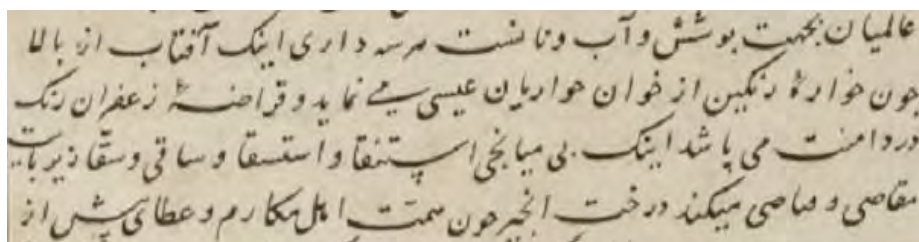 عالمیان بجهت پوشش و آب و نانست هرسه داری اینک آفتاب از بالا
جون خوارهٔ رنکین از خوان حواریان عیسی می نماید و قراضهٔ زعفران رنک
دردامنت می پاشد اینک بی میانجی استسقا و ساقی و سقا زیر پات
می‌کند درخت انجیر جون سمت اهل مکارم و عطای پیش از